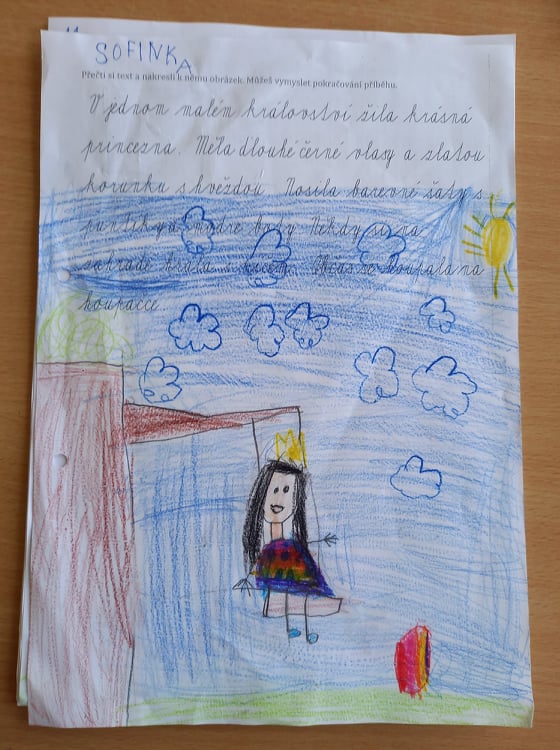 SOFINKA
Přečti si text a nakresli k němu obrázek. Můžeš vymyslet pokračování příběhu.
V jednom malém království žila krásná
princezna. Měla dlouhé černé vlasy a zlatou
korunku s hvězdou. Nosila barevné šaty s
puntíky a modré boty. Někdy si na
zahradě hrála s míčem. Občas se houpala na
houpačce.